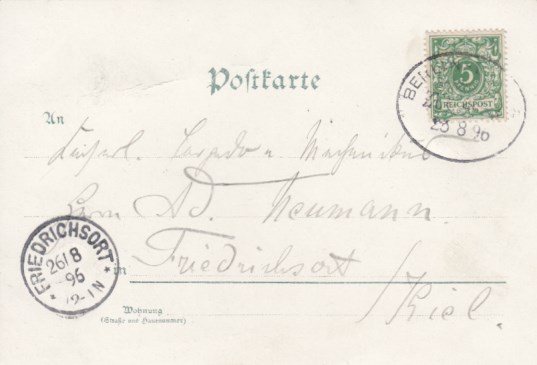 Postkarte
5
REICHSPOST
23 8 96
An
Kaiserl. Torpedo u. Mechanikus
Herrn Ad. Neumann.
FRIEDRICHSORT
26/8
96
12-1N
in Friedrichsort
/Kiel.
Wohnung
(Straße und Hausnummer)